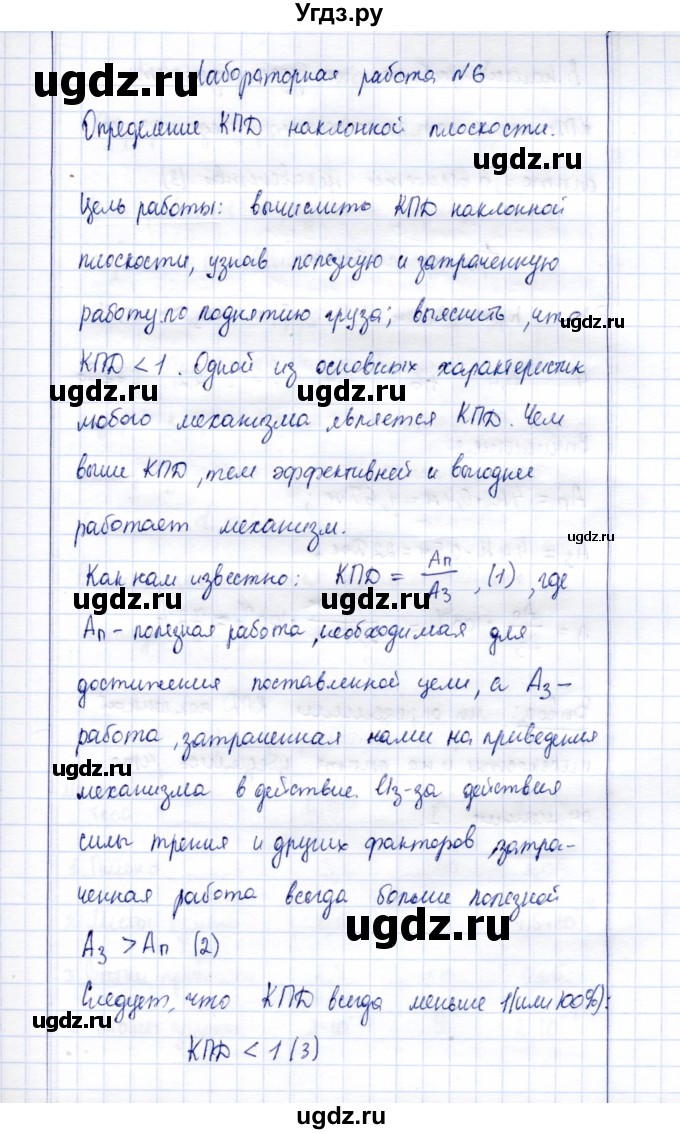 Угдз.ру
Лабораторная работа №6
Определение КПД наклонной плоскости.
Цель работы: вычислить КПД наклонной
плоскости, узнав полезную и затраченную
работу по поднятию груза; выяснить, что
КПД < 1. Одной из основных характеристик
любого механизма является КПД. Чем
выше КПД, тем эффективней и выгоднее
работает механизм.
Как нам известно: КПД = Aп/Aз, (1), где
Ап - полезная работа, необходимая для
достижения поставленной цели, а Аз -
работа, затраченная нами на приведения
механизма в действие. Из-за действия
силы трения и других факторов, затра-
ченная работа всегда больше полезной
Аз > Ап (2)
Следует, что КПД всегда меньше 1(или 100%):
КПД < 1 (3)
ugdz.ru
ugdz.ru
ugdz.ru
ugdz.ru
ugdz.ru
ugdz.ru
ugdz.ru
ugdz.ru
ugdz.ru
ugdz.ru
ugdz.ru
ugdz.ru
ugdz.ru
ugdz.ru